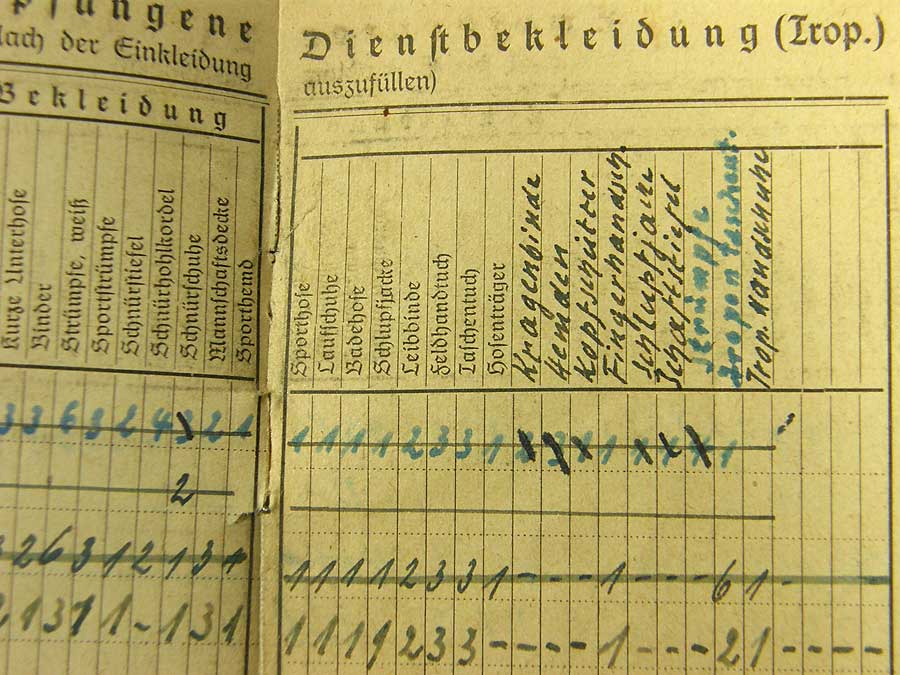 pfangene
Dienstbekleidung (Trop.)
Nach der Einkleidung
auszufüllen)
Bekleidung
Kurze Unterhose
Binder
Strümpfe, weiß
Sportstrümpfe
Schnürstiefel
Schnürhohlkordel
Schnürschuhe
Mannschaftsdecke
Sporthemd
Sporthose
Laufschuhe
Badehose
Schlupfjacke
Leibbinde
Feldhandtuch
Taschentuch
Hosenträger
Kragenbinde
Hemden
Kopfschützer
Fingerhandsch.
Schlupfjacke
Schaftstiefel
Strümpfe
Tropen
Trop. Handschuhe
3 3 6 3 2 4 3 2 1
1 1 1 1 2 3 3 1
2
2 6 3 1 2 1 3 1
1 1 1 1 2 3 3 1 - - - 1 - - - 6 1 -
1 3 1 1 - 1 3 1
1 1 1 1 2 3 3 - - - - 1 - - - 2 1 - - - -